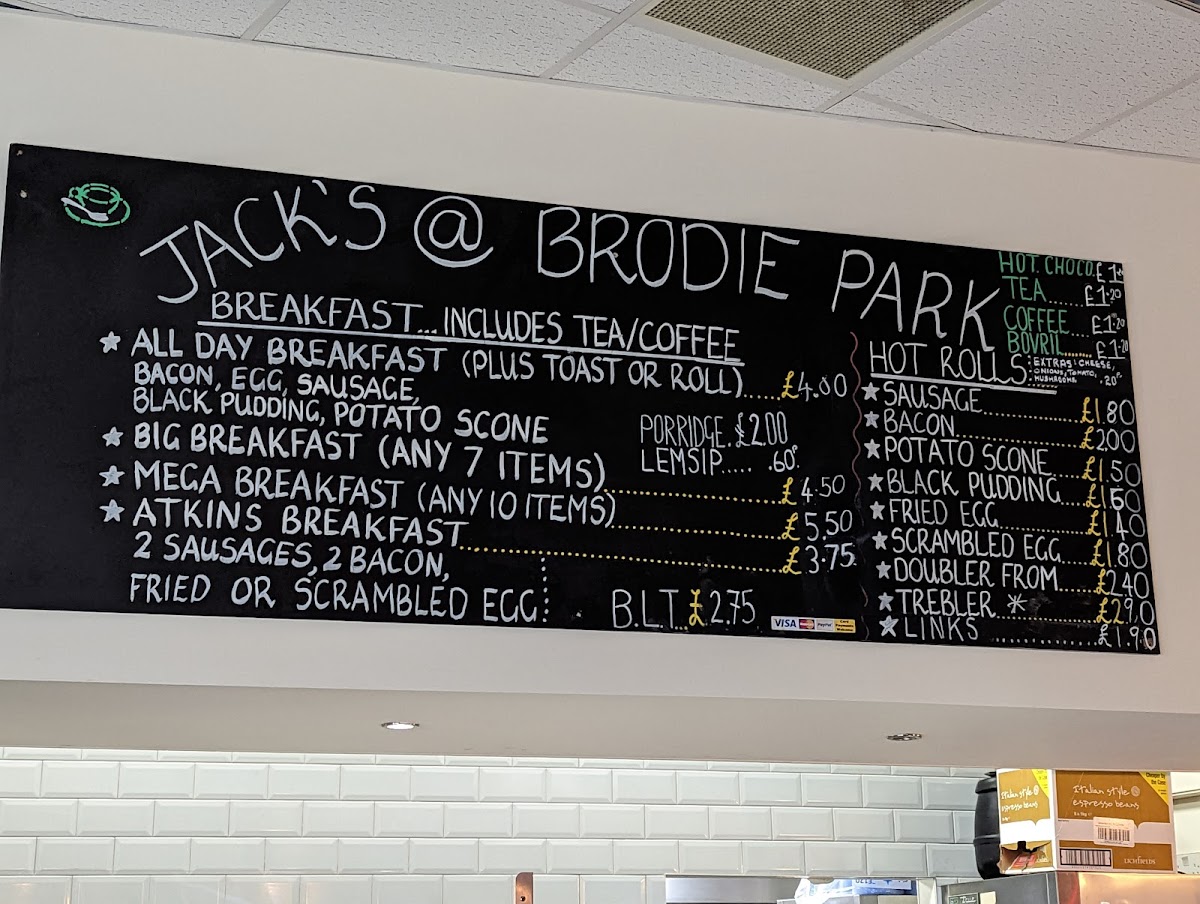 JACK'S @ BRODIE PARK
BREAKFAST... INCLUDES TEA/COFFEE
★ ALL DAY BREAKFAST (PLUS TOAST OR ROLL)..... £4.00
BACON, EGG, SAUSAGE,
BLACK PUDDING, POTATO SCONE
★ BIG BREAKFAST (ANY 7 ITEMS) £4.50
★ MEGA BREAKFAST (ANY 10 ITEMS) £5.50
★ ATKINS BREAKFAST £3.75
2 SAUSAGES, 2 BACON,
FRIED OR SCRAMBLED EGG
PORRIDGE. £2.00
LEMSIP..... .60P
B.L.T... £2.75
VISA MasterCard PayPal
HOT CHOCO. £1
TEA...... £1.20
COFFEE.... £1.20
BOVRIL...... £1.20
HOT ROLLS: EXTRAS: CHEESE,
ONIONS, TOMATO,
MUSHROOMS .20P
★ SAUSAGE £1.80
★ BACON £2.00
★ POTATO SCONE £1.50
★ BLACK PUDDING £1.50
★ FRIED EGG £1.40
★ SCRAMBLED EGG £1.80
★ DOUBLER FROM £2.40
★ TREBLER * £2.90
★ LINKS £1.90
Italian style
espresso beans
Italian style
espresso beans
LICHFIELDS